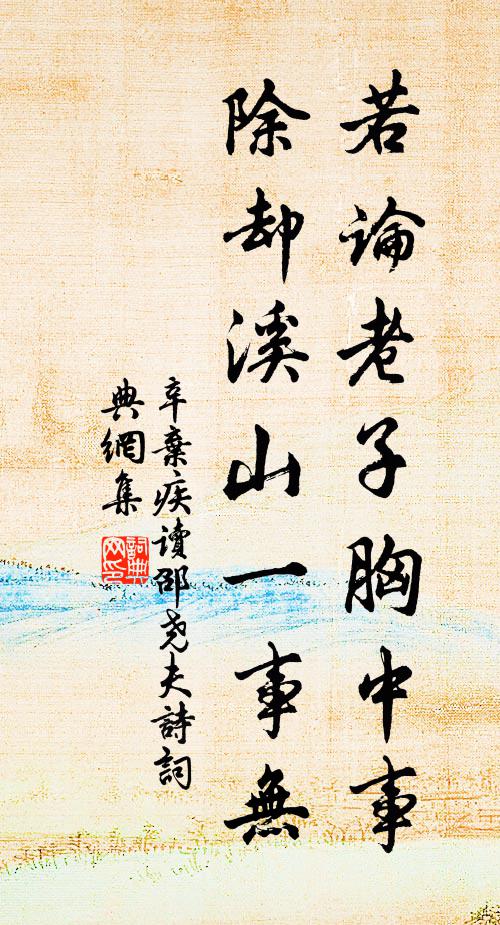 若論老子胸中事
除却溪山一事無
辛棄疾讀邵尧夫詩詞
典網集
詞典
网印